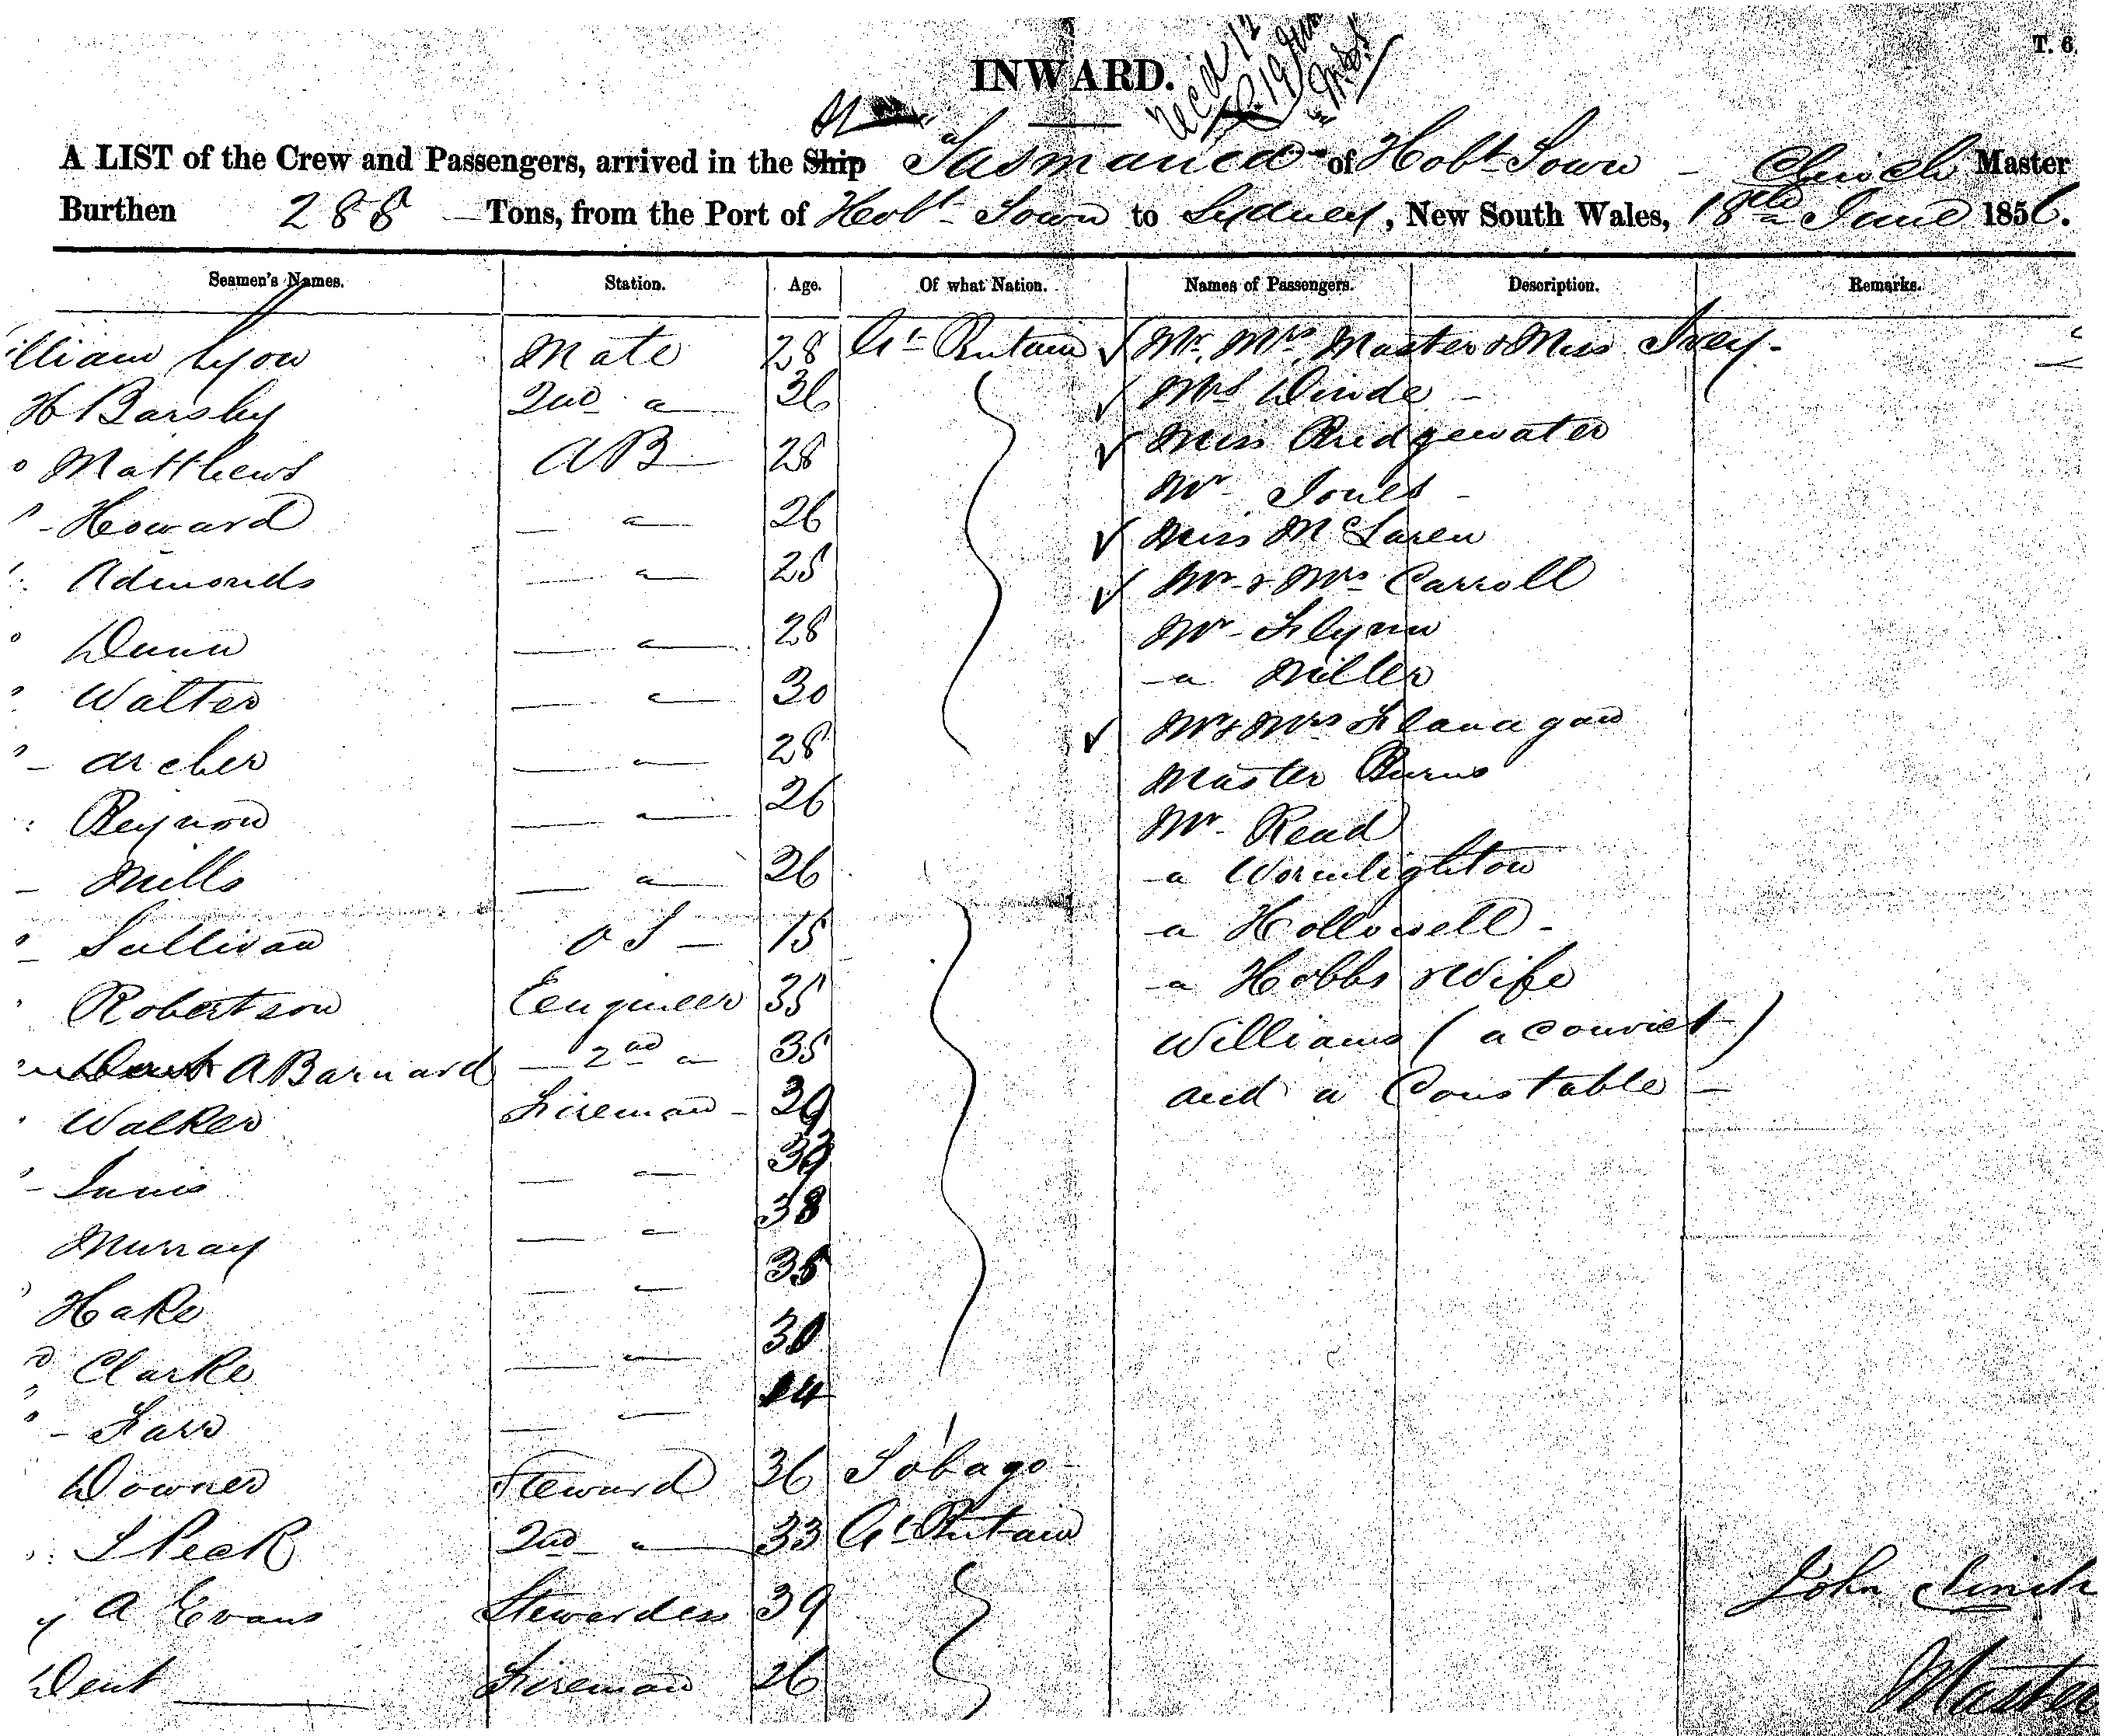 T. 6.
INWARD.
A LIST of the Crew and Passengers, arrived in the Ship "Tasmania" of Hobt Town - Clinch Master
Burthen 288 Tons, from the Port of Hobt Town to Sydney, New South Wales, 18th June 1856.
Seamen's Names. Station. Age. Of what Nation. Names of Passengers. Description. Remarks.
illiam Lyon Mate 28 Gt Britain ✓ Mr. Mrs. Master & Miss Ivey -
H Barsby 2nd " 36 ✓ Mrs Winde -
Matthews AB 28 ✓ Miss Bridgewater
Howard " 26 Mr Jones -
Admonds " 25 ✓ Miss McLaren
Dunn " 28 ✓ Mr & Mrs Carroll
Walter " 30 Mr Flynn
Archer " 28 " Miller
Reynon " 26 ✓ Mr & Mrs Flanagan
Mills " 26 Master Burns
Sullivan OS - 15 Mr Read
Robertson Eengineer 35 " Wormlighton
A Barnard 2nd " 35 " Hollowell -
Walker Fireman - 39 " Hobbs & Wife
Innis " Williams (a convict)
Murray " 38 and a Constable -
Hake " 35
Clarke " 30
Farr "
Downer Steward 36 Tobago
Peck 2nd " 33 Gt Britain
A Evans Stewardess 39
Dent Fireman 26
John Clinch
Master